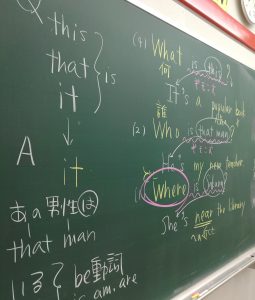 Q this
that } is
it
↓
A it
あの男性は
that man
いる } be動詞
is, am, are
(4) What is this ?
何
It's a popular book
誰
(2) Who is that man ?
He's my new teacher
Where is
She's near the library